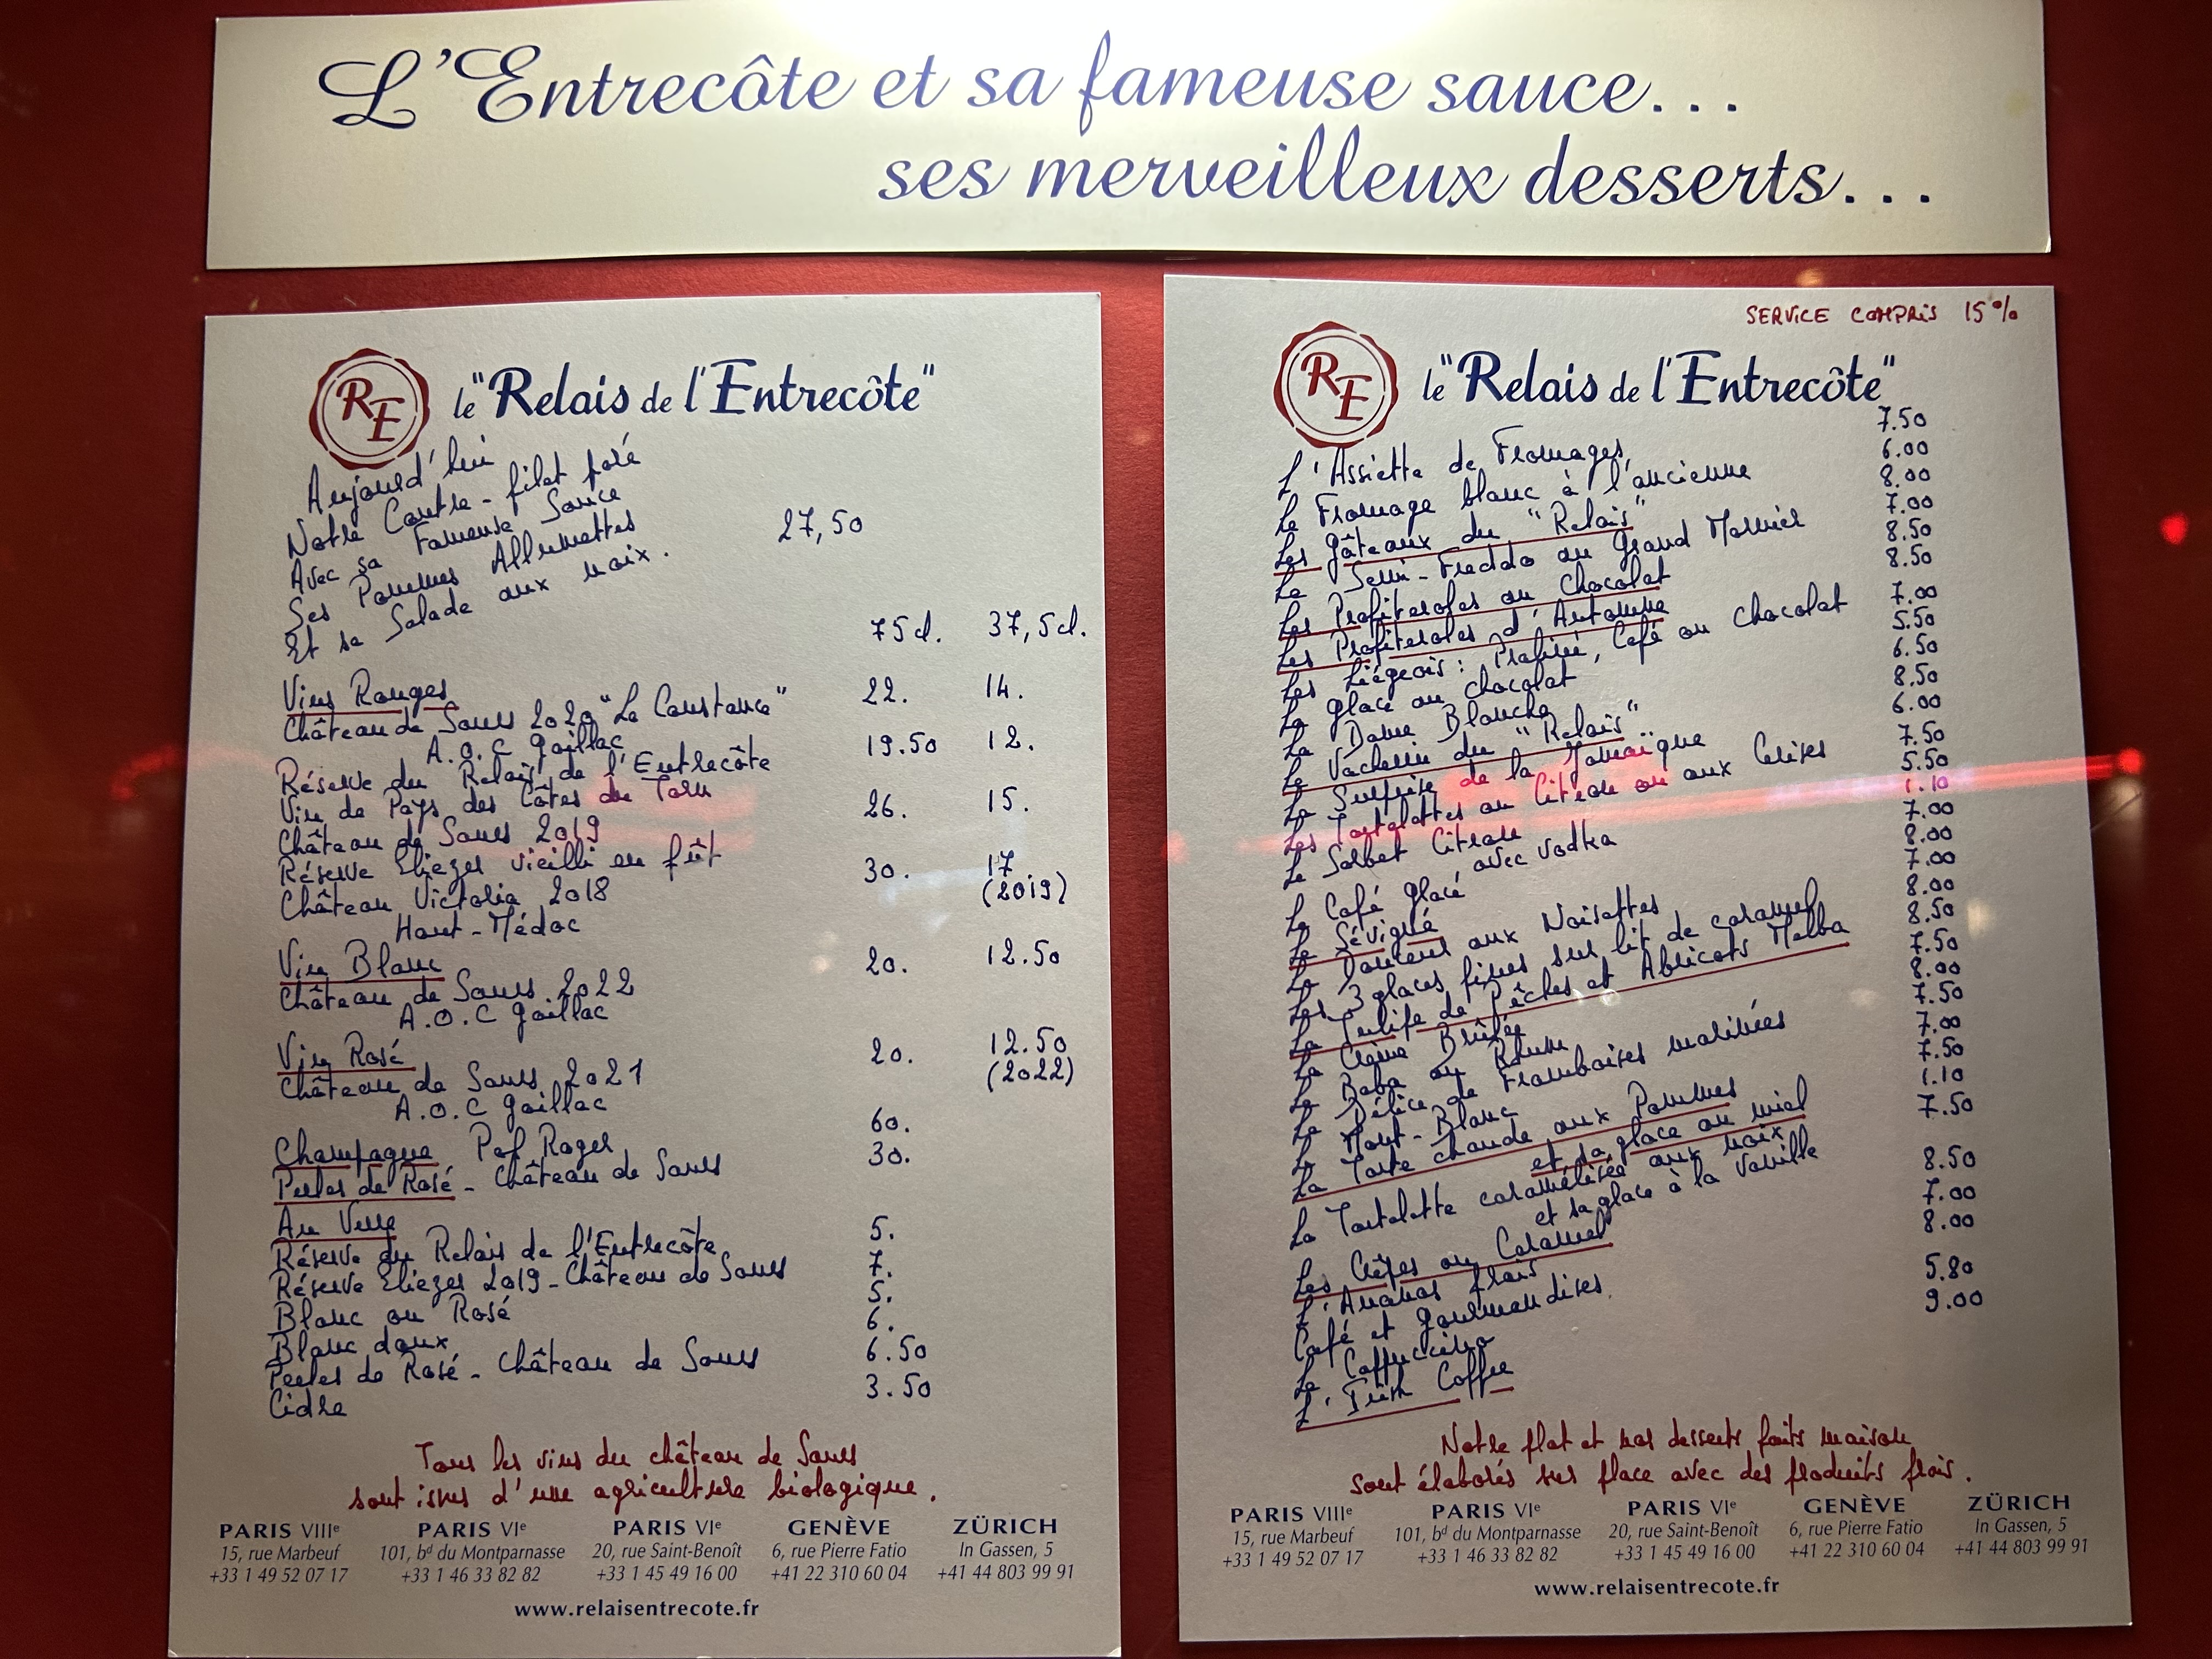 L'Entrecôte et sa fameuse sauce...
ses merveilleux desserts...
RE le "Relais de l'Entrecôte"
Aujourd'hui
Notre Contre-filet paré
Avec sa Fameuse Sauce
Ses Pommes Allumettes
Et sa Salade aux noix.
27,50
75cl. 37,5cl.
Vins Rouges
Château de Saurs 2020 "La Constance" 22. 14.
A.O.C Gaillac
Réserve du Relais de l'Entrecôte 19.50 12.
Vin de Pays des Côtes du Tarn
Château de Saurs 2019 26. 15.
Réserve Eliezer vieilli en fût
Château Victoria 2018 30. 17
Haut-Médoc (2019)
Vin Blanc
Château de Saurs 2022 20. 12.50
A.O.C Gaillac
Vin Rosé
Château de Saurs 2021 20. 12.50
A.O.C Gaillac (2022)
Champagne Pol Roger 60.
Perles de Rosé - Château de Saurs 30.
Au Verre
Réserve du Relais de l'Entrecôte 5.
Réserve Eliezer 2019 - Château de Saurs 7.
Blanc ou Rosé 5.
Blanc doux 6.
Perles de Rosé - Château de Saurs 6.50
Cidre 3.50
Tous les vins du château de Saurs
sont issus d'une agriculture biologique.
PARIS VIIIe PARIS VIe PARIS VIe GENÈVE ZÜRICH
15, rue Marbeuf 101, bd du Montparnasse 20, rue Saint-Benoît 6, rue Pierre Fatio In Gassen, 5
+33 1 49 52 07 17 +33 1 46 33 82 82 +33 1 45 49 16 00 +41 22 310 60 04 +41 44 803 99 91
www.relaisentrecote.fr
SERVICE COMPRIS 15%
RE le "Relais de l'Entrecôte"
L'Assiette de Fromages 7.50
Le Fromage blanc à l'ancienne 6.00
Les gâteaux du "Relais" 8.00
Le Semi-Freddo au Grand Marnier 7.00
Les Profiteroles au Chocolat 8.50
Les Profiteroles d'Automne 8.50
Les Liégeois : Praliné, Café ou Chocolat 7.00
La glace au chocolat 5.50
La Dame Blanche 6.50
Le Vacherin du "Relais" 8.50
La Surprise de la Jamaïque 6.00
Les Tartelettes au Citron ou aux Cerises 7.50
Le Sorbet Citron 5.50
avec Vodka 1.10
Le Café glacé 7.00
Le Sévigné 8.00
La Douceur aux Noisettes 7.00
Les 3 glaces fines sur lit de caramel 8.00
La Tulipe de Pêches et Abricots Melba 8.50
La Crème Brûlée 7.50
Le Baba au Rhum 8.00
Le Délice de Framboises marinées 7.50
Le Mont-Blanc 7.00
La Tarte chaude aux Pommes 7.50
et sa glace au miel 1.10
La Tartelette caramélisée aux noix 7.50
et sa glace à la Vanille
Les Crêpes au Caramel 8.50
L'Ananas frais 7.00
Café et gourmandises 8.00
Le Cappuccino 5.80
L'Irish Coffee 9.00
Notre plat et nos desserts faits maison
sont élaborés sur place avec des produits frais.
PARIS VIIIe PARIS VIe PARIS VIe GENÈVE ZÜRICH
15, rue Marbeuf 101, bd du Montparnasse 20, rue Saint-Benoît 6, rue Pierre Fatio In Gassen, 5
+33 1 49 52 07 17 +33 1 46 33 82 82 +33 1 45 49 16 00 +41 22 310 60 04 +41 44 803 99 91
www.relaisentrecote.fr